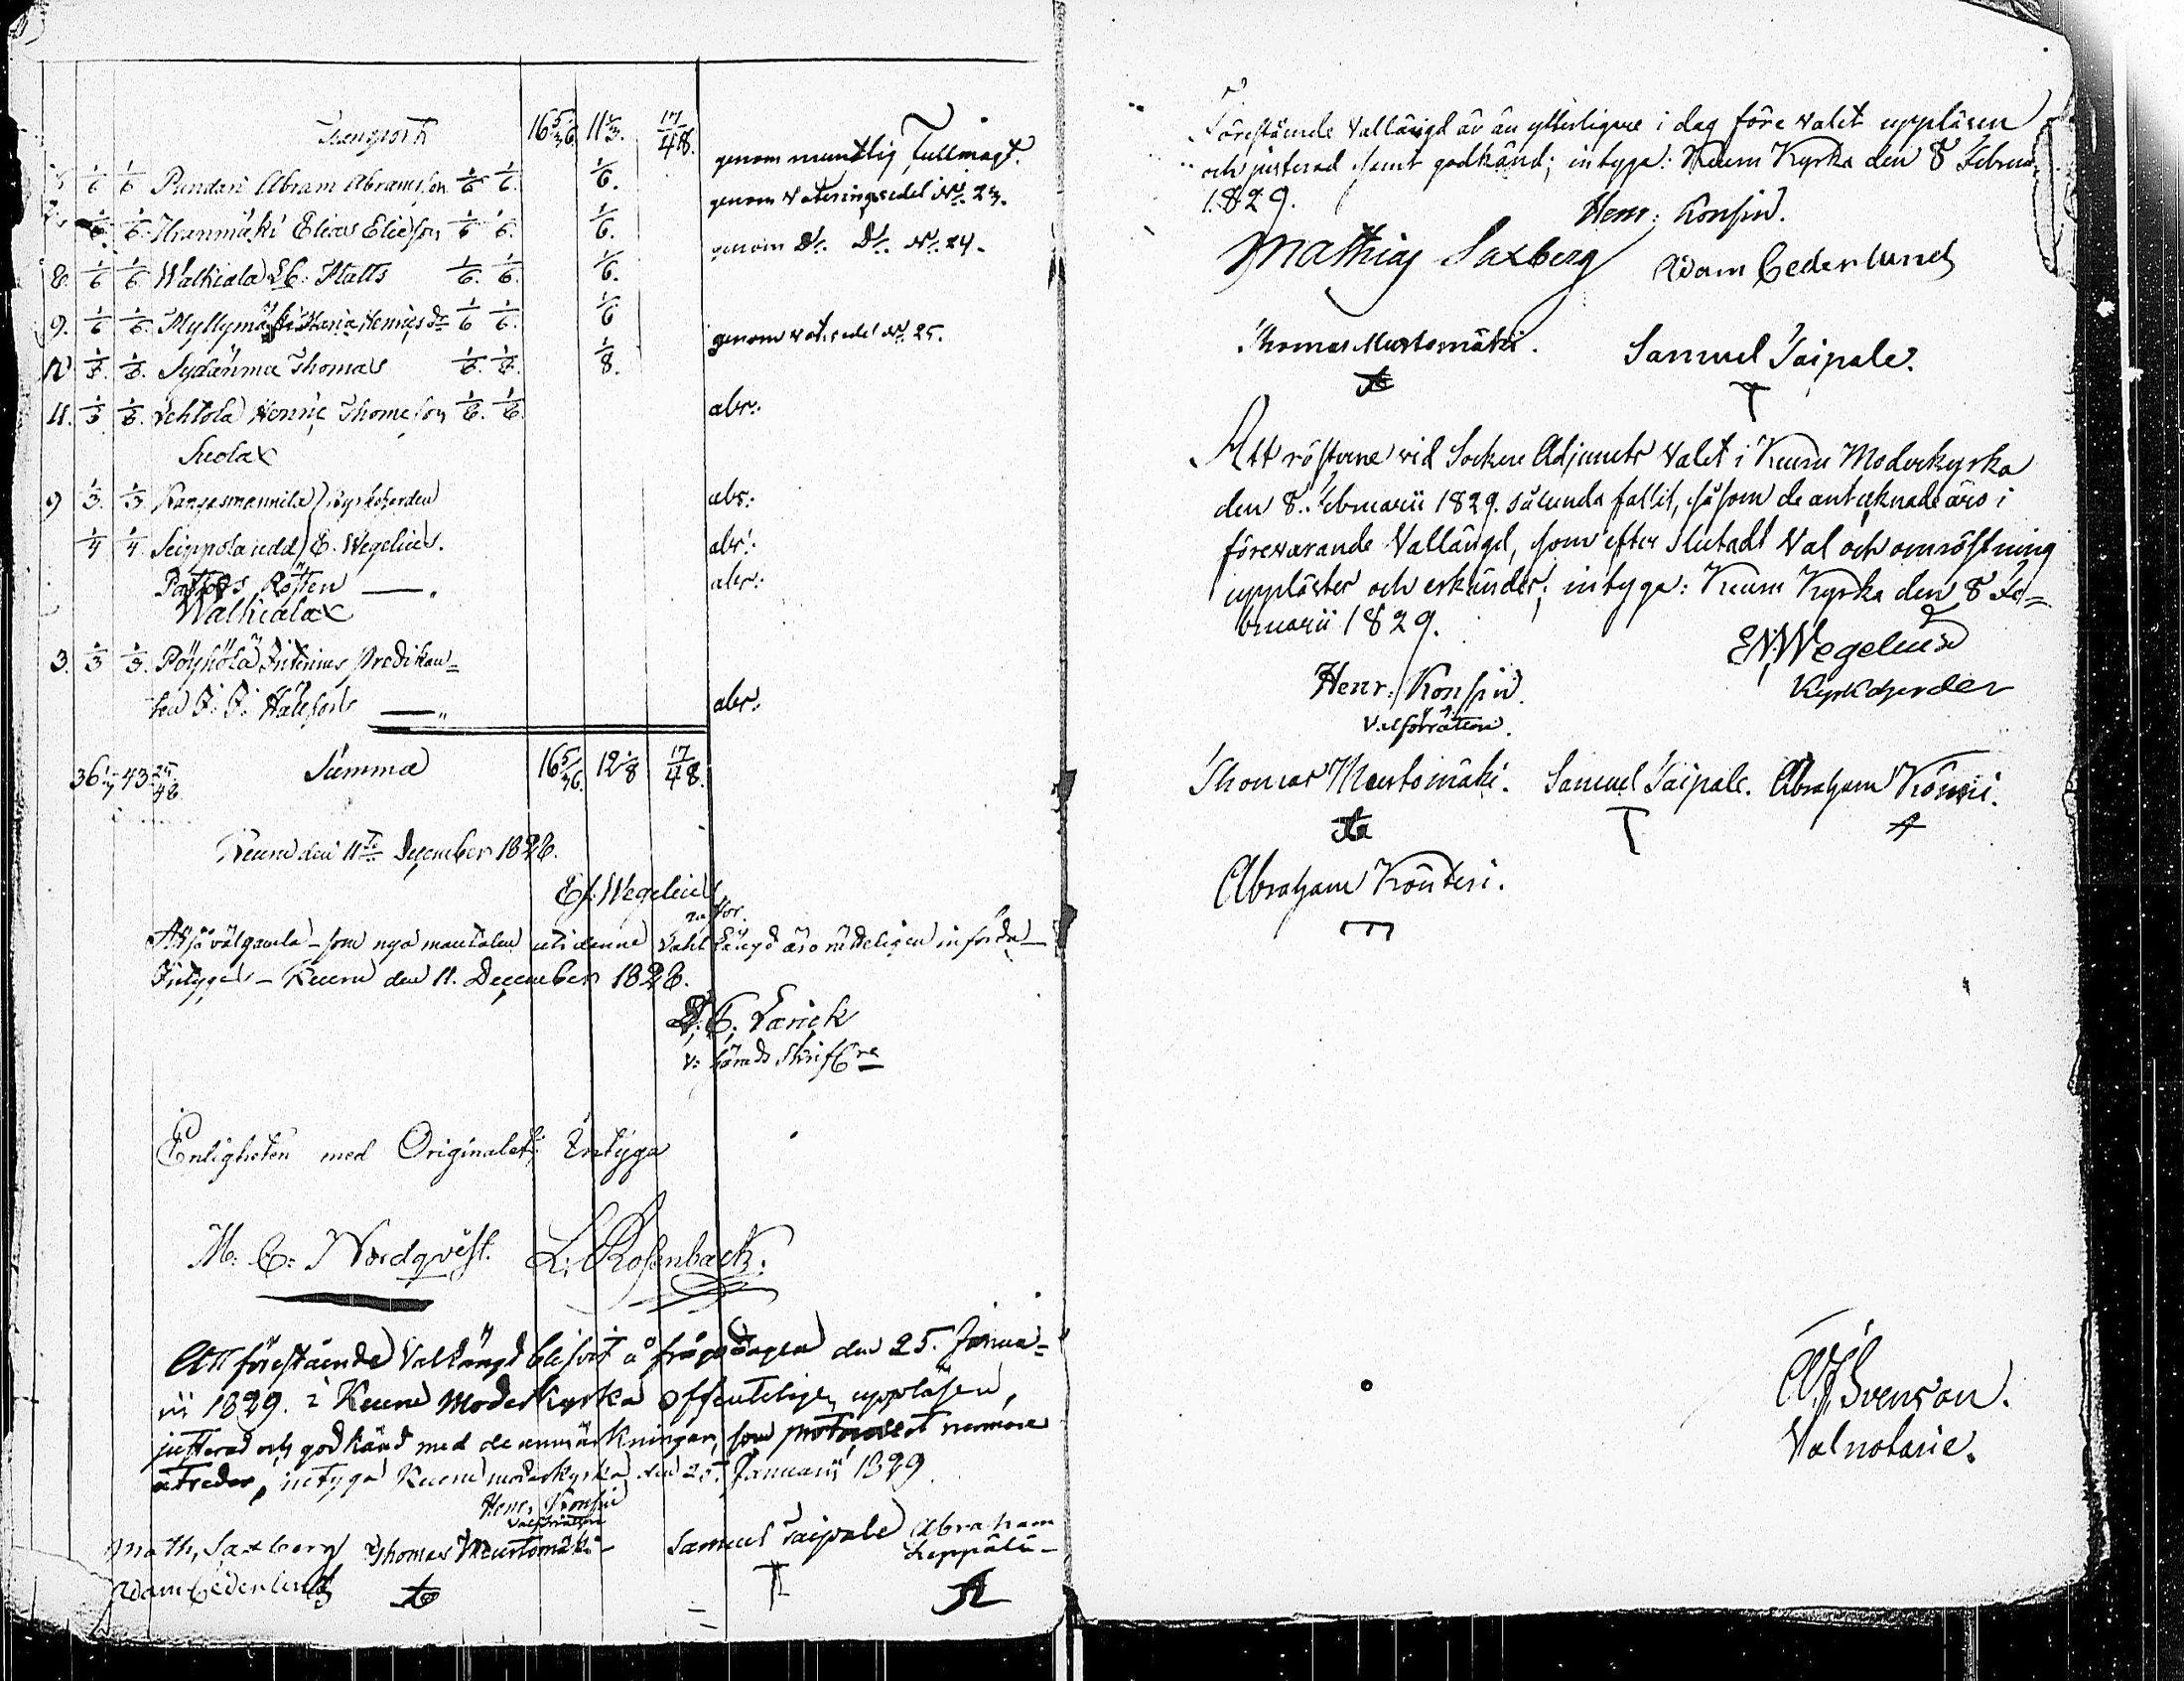 Transport 16 5/36. 11 1/3. 17/48.
1/6 1/6 Pundari Abram Abramsson 1/6 1/6. 1/6. genom muntlig Fullmagt.
1/6. 1/6. Elias Eliesson 1/6 1/6. 1/6. genom voteringssedel No. 23.
8. 1/6 1/6 Walkiala Matts 1/6. 1/6. 1/6. genom Do. Do. No. 24.
9. 1/6 1/6. Myllymäki Maria Henricsdr 1/6 1/6. 1/6
1/8. Sydänmaa Thomas 1/8. 1/8. 1/8. genom vot.sedel No. 25.
11. 1/3 Lehtola Henric Thomesson abs:
9 1/3. 1/3. Kangasmannila Kyrkoherden abs:
1/4 1/4. Seippola E. Wegelius. abs:
Pastors Rotten — „ abs:
Walkialax
3. 1/3 1/3. Pöyhölä Predikan=
ten — „ abs:
Summa 16 5/36. 12 1/8 17/48.
Keuru den 11te December 1828.
Ef. Wegelius
Pastor.
Att så väl gamla – som nya mantalen uti denne Vahl Längd äro rätteligen införda
Intygas – Keuru den 11. December 1828.
Enligheten med Originalet; Intyga
M: C: Nordqvist. L. Rosenback.
Att förestående Vallängd blifvit å frågodagen den 25. Janua=
rii 1829. i Keuru Moderkyrka offenteligen uppläsen,
justerad och godkänd med de anmärkningar, som protocollet närmare
utreder, intyga Keuru moderkyrka den 25. Januarii 1829
Henr. Konsin
Valförrättare
Math, Saxberg Thomas Mustomäki Samuel Taipale Abraham
Leppälä –
Adam Cederlund
Förestående Vallängd är än ytterligare i dag före valet uppläsen
och justerad samt godkänd; intyga: Keuru Kyrka den 8 Februa
1829.
Henr: Konsin.
Mathias Saxberg Adam Cederlund
Thomas Mustomäki. Samuel Taipale.
T
Att rösterne vid Sockne Adjuncts Valet i Keuru Moderkyrka
den 8. Februarii 1829. sålunda fallit, såsom de antecknade äro i
förevarande Vallängd, som efter slutadt Val och omröstning
upplästes och erkändes; intyga: Keuru Kyrka den 8 Fe=
bruarii 1829.
EN. Wegelius
Kyrkoherde
Henr: Konsin.
Valförrättare.
Thomas Mustomäki. Samuel Taipale. Abraham
T A
Abraham
Svenson.
Valnotarie.